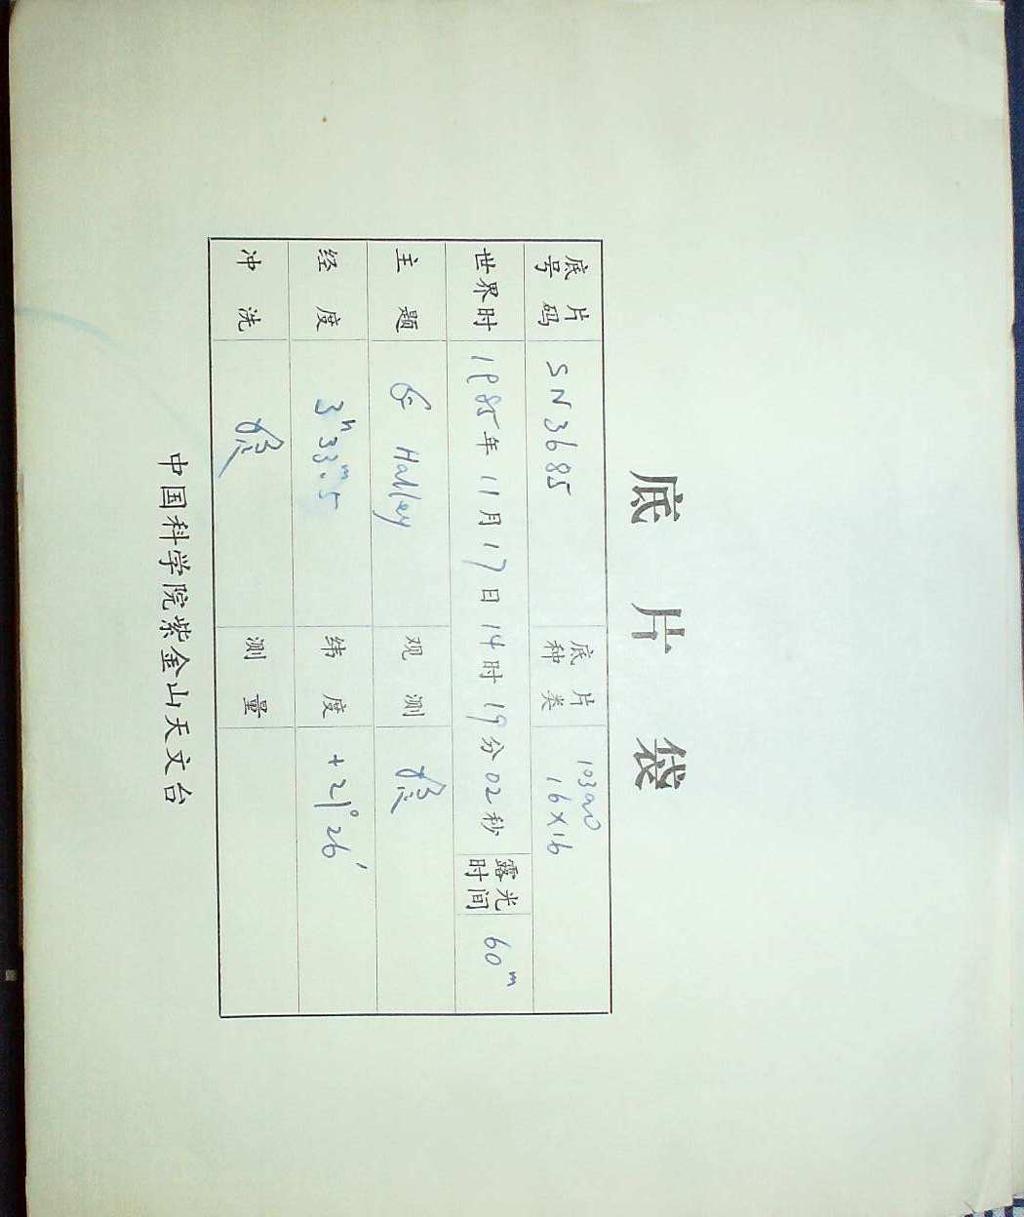 底片袋
底片号码 SN3685 底片种类 103aO 16×16
世界时 1985年11月17日14时19分02秒 露光时间 60m
主题 Halley 观测
经度 3h33m.5 纬度 +21°26′
冲洗 测量
中国科学院紫金山天文台